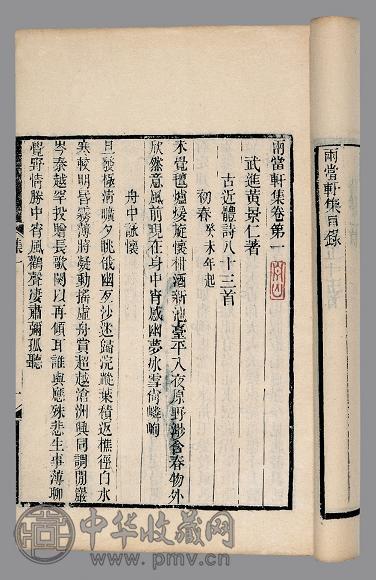 兩當軒集目錄
兩當軒集卷第一
武進黃景仁著
古近體詩八十三首
初春 癸未年起
未覺氊爐愛旋懷柑酒新池臺平入夜原野渺含春物外
欣然意風前現在身中宵感幽夢冰雪尚嶙峋
舟中詠懷
旦發極清曠夕眺俄幽夐沙迷歸浣蹤葉積樵徑白水
寒較明昏霧薄將凝動搖虛舟賞超越滄洲興同調閒巖
岑秦越罕投贈長歌闋以再傾耳誰與應殊悲生事薄聊
覺野情勝中宵風鸛聲凄肅彌孤聽
集一
中华收藏网
www.pmv.cn